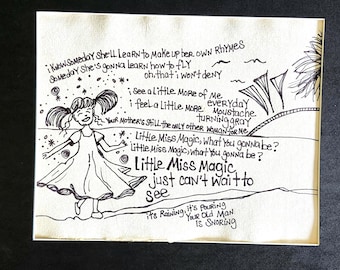 i know someday she'll learn to make up her own rhymes
someday she's gonna learn how to fly
oh, that i won't deny
i see a little more of me
everyday
i feel a little more moustache
turning gray
Your mother's still the only other woman for me
Little Miss Magic, what you gonna be?
Little Miss Magic, what you gonna be?
Little Miss Magic
just can't wait to
see
It's Raining, it's Pouring
Your Old Man
is Snoring